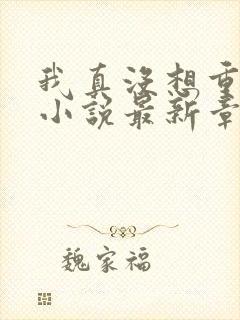 我真没想重
小说最新章
魏家福